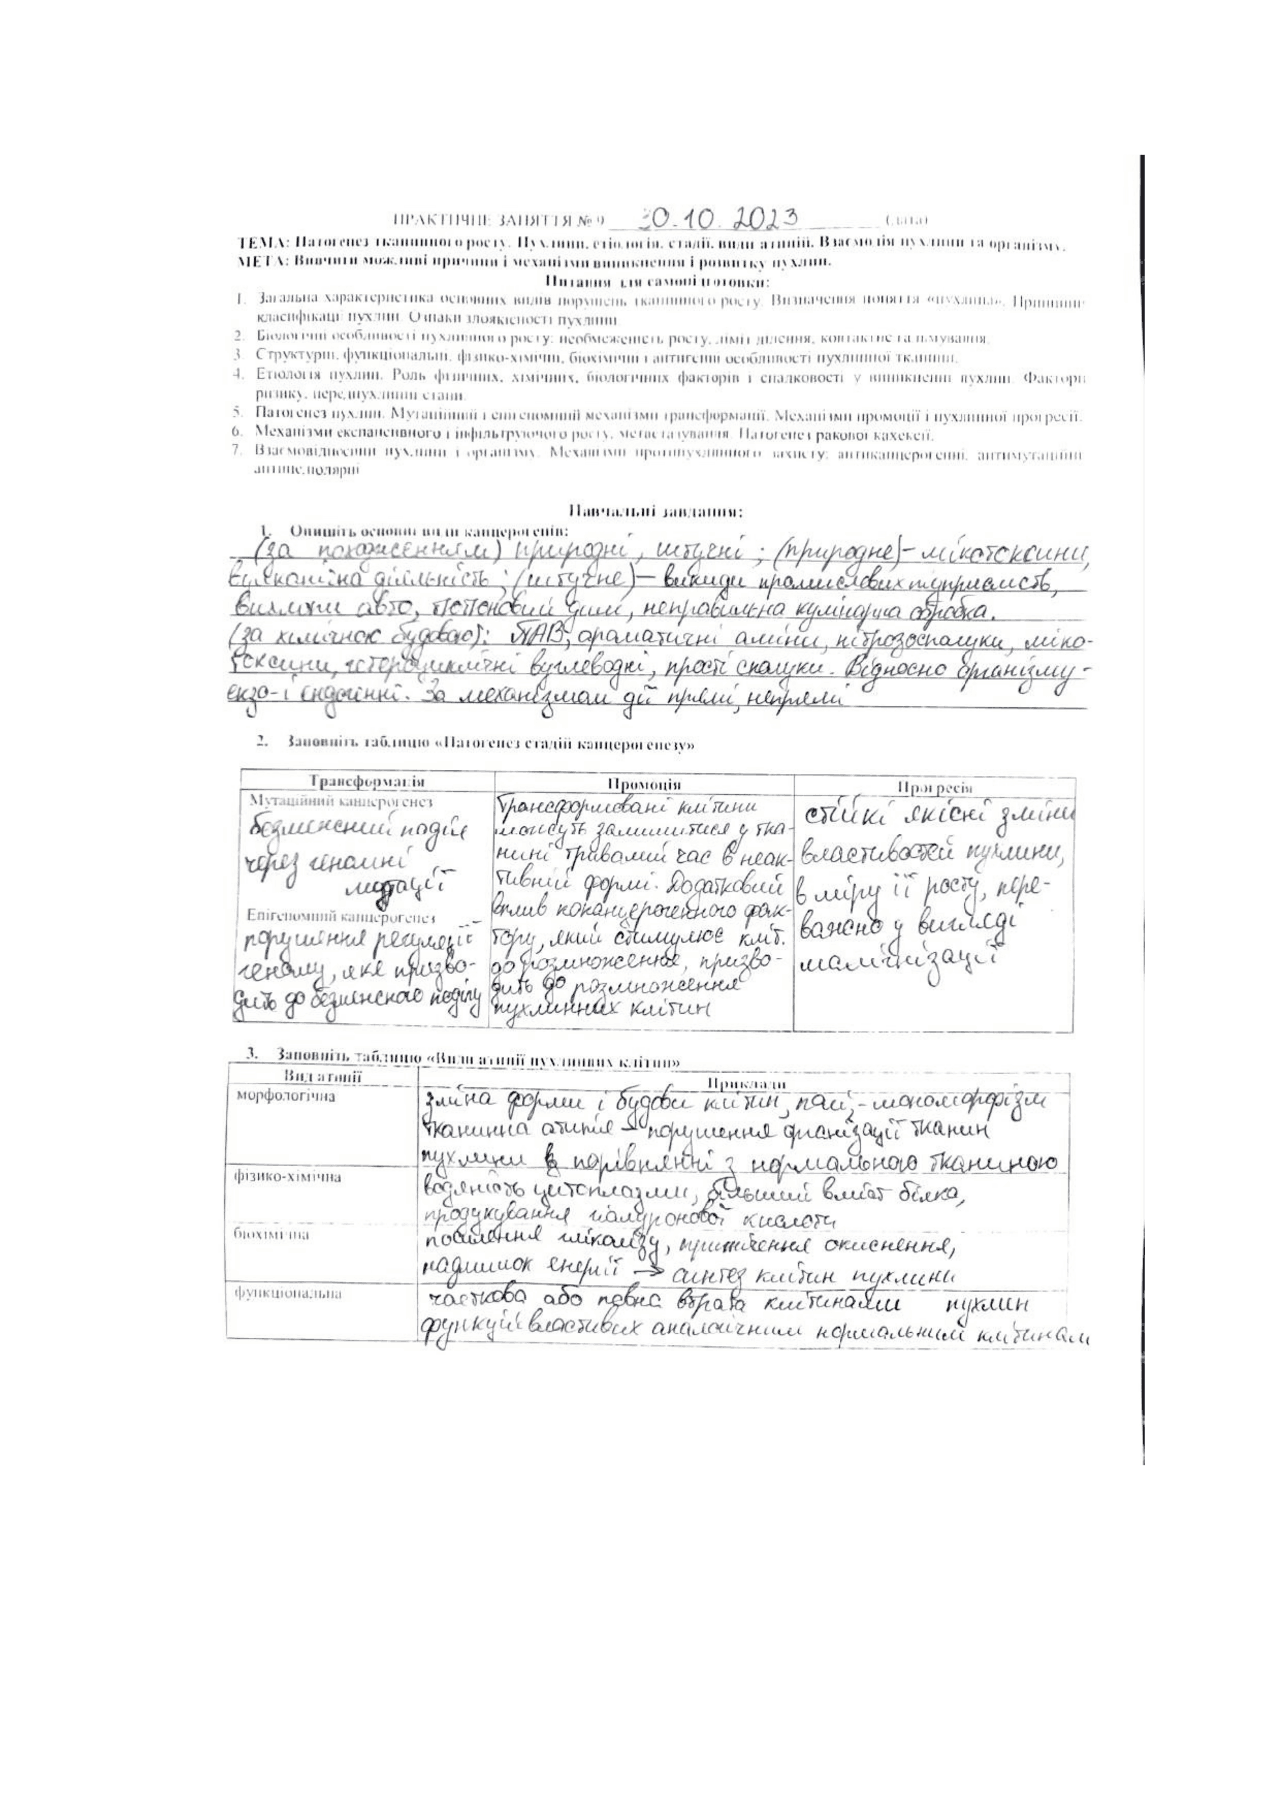 ПРАКТИЧНЕ ЗАНЯТТЯ № 9 30.10.2023 (дата)
ТЕМА: Патогенез тканинного росту. Пухлини, етіологія, стадії, види атипії. Взаємодія пухлини та організму.
МЕТА: Вивчити можливі причини і механізми виникнення і розвитку пухлин.
Питання для самопідготовки:
1. Загальна характеристика основних видів порушень тканинного росту. Визначення поняття «пухлина». Принципи
класифікації пухлин. Ознаки злоякісності пухлини
2. Біологічні особливості пухлинного росту: необмеженість росту, ліміт ділення, контактне гальмування.
3. Структурні, функціональні, фізико-хімічні, біохімічні і антигенні особливості пухлинної тканини.
4. Етіологія пухлин. Роль фізичних, хімічних, біологічних факторів і спадковості у виникненні пухлин. Фактори
ризику, передпухлинні стани.
5. Патогенез пухлин. Мутаційний і епігеномний механізми трансформації. Механізми промоції і пухлинної прогресії.
6. Механізми експансивного і інфільтруючого росту, метастазування. Патогенез ракової кахексії.
7. Взаємовідносини пухлини і організму. Механізми протипухлинного захисту: антиканцерогенні, антимутаційні
антицелюлярні
Навчальні завдання:
1. Опишіть основні види канцерогенів:
(за походженням) природні, штучні; (природне) - мікотоксини,
вулканічна діяльність; (штучне) — викиди промислових підприємств,
вихлопи авто, тютюновий дим, неправильна кулінарна обробка.
(за хімічною будовою): ПАВ, ароматичні аміни, нітрозосполуки, міко-
токсини, гетероциклічні вуглеводні, прості сполуки. Відносно організму -
екзо- і ендогенні. За механізмом дії прямі, непрямі
2. Заповніть таблицю «Патогенез стадій канцерогенезу»
Трансформація Промоція Прогресія
Мутаційний канцерогенез
безмежний поділ
через геномні
мутації
Епігеномний канцерогенез
порушення регуляції
геному, яке призво-
дить до безмежного поділу
Трансформовані клітини
можуть залишитися у тка-
нині тривалий час в неак-
тивній формі. Додатковий
вплив коканцерогенного фак-
тору, який стимулює кліт.
до розмноження, призво-
дить до розмноження
пухлинних клітин
стійкі якісні зміни
властивостей пухлини,
в міру її росту, пере-
важно у вигляді
малігнізації
3. Заповніть таблицю «Види атипії пухлинних клітин»
Вид атипії Приклади
морфологічна
зміна форми і будови клітин, - мономорфізм
тканинна атипія - порушення організації тканин
пухлини в порівнянні з нормальною тканиною
фізико-хімічна
водяність цитоплазми, більший вміст білка,
продукування гіалуронової кислоти
біохімічна
посилення гліколізу, пригнічення окиснення,
надлишок енергії → синтез клітин пухлини
функціональна
часткова або повна втрата клітинами пухлин
функцій властивих аналогічним нормальним клітинам